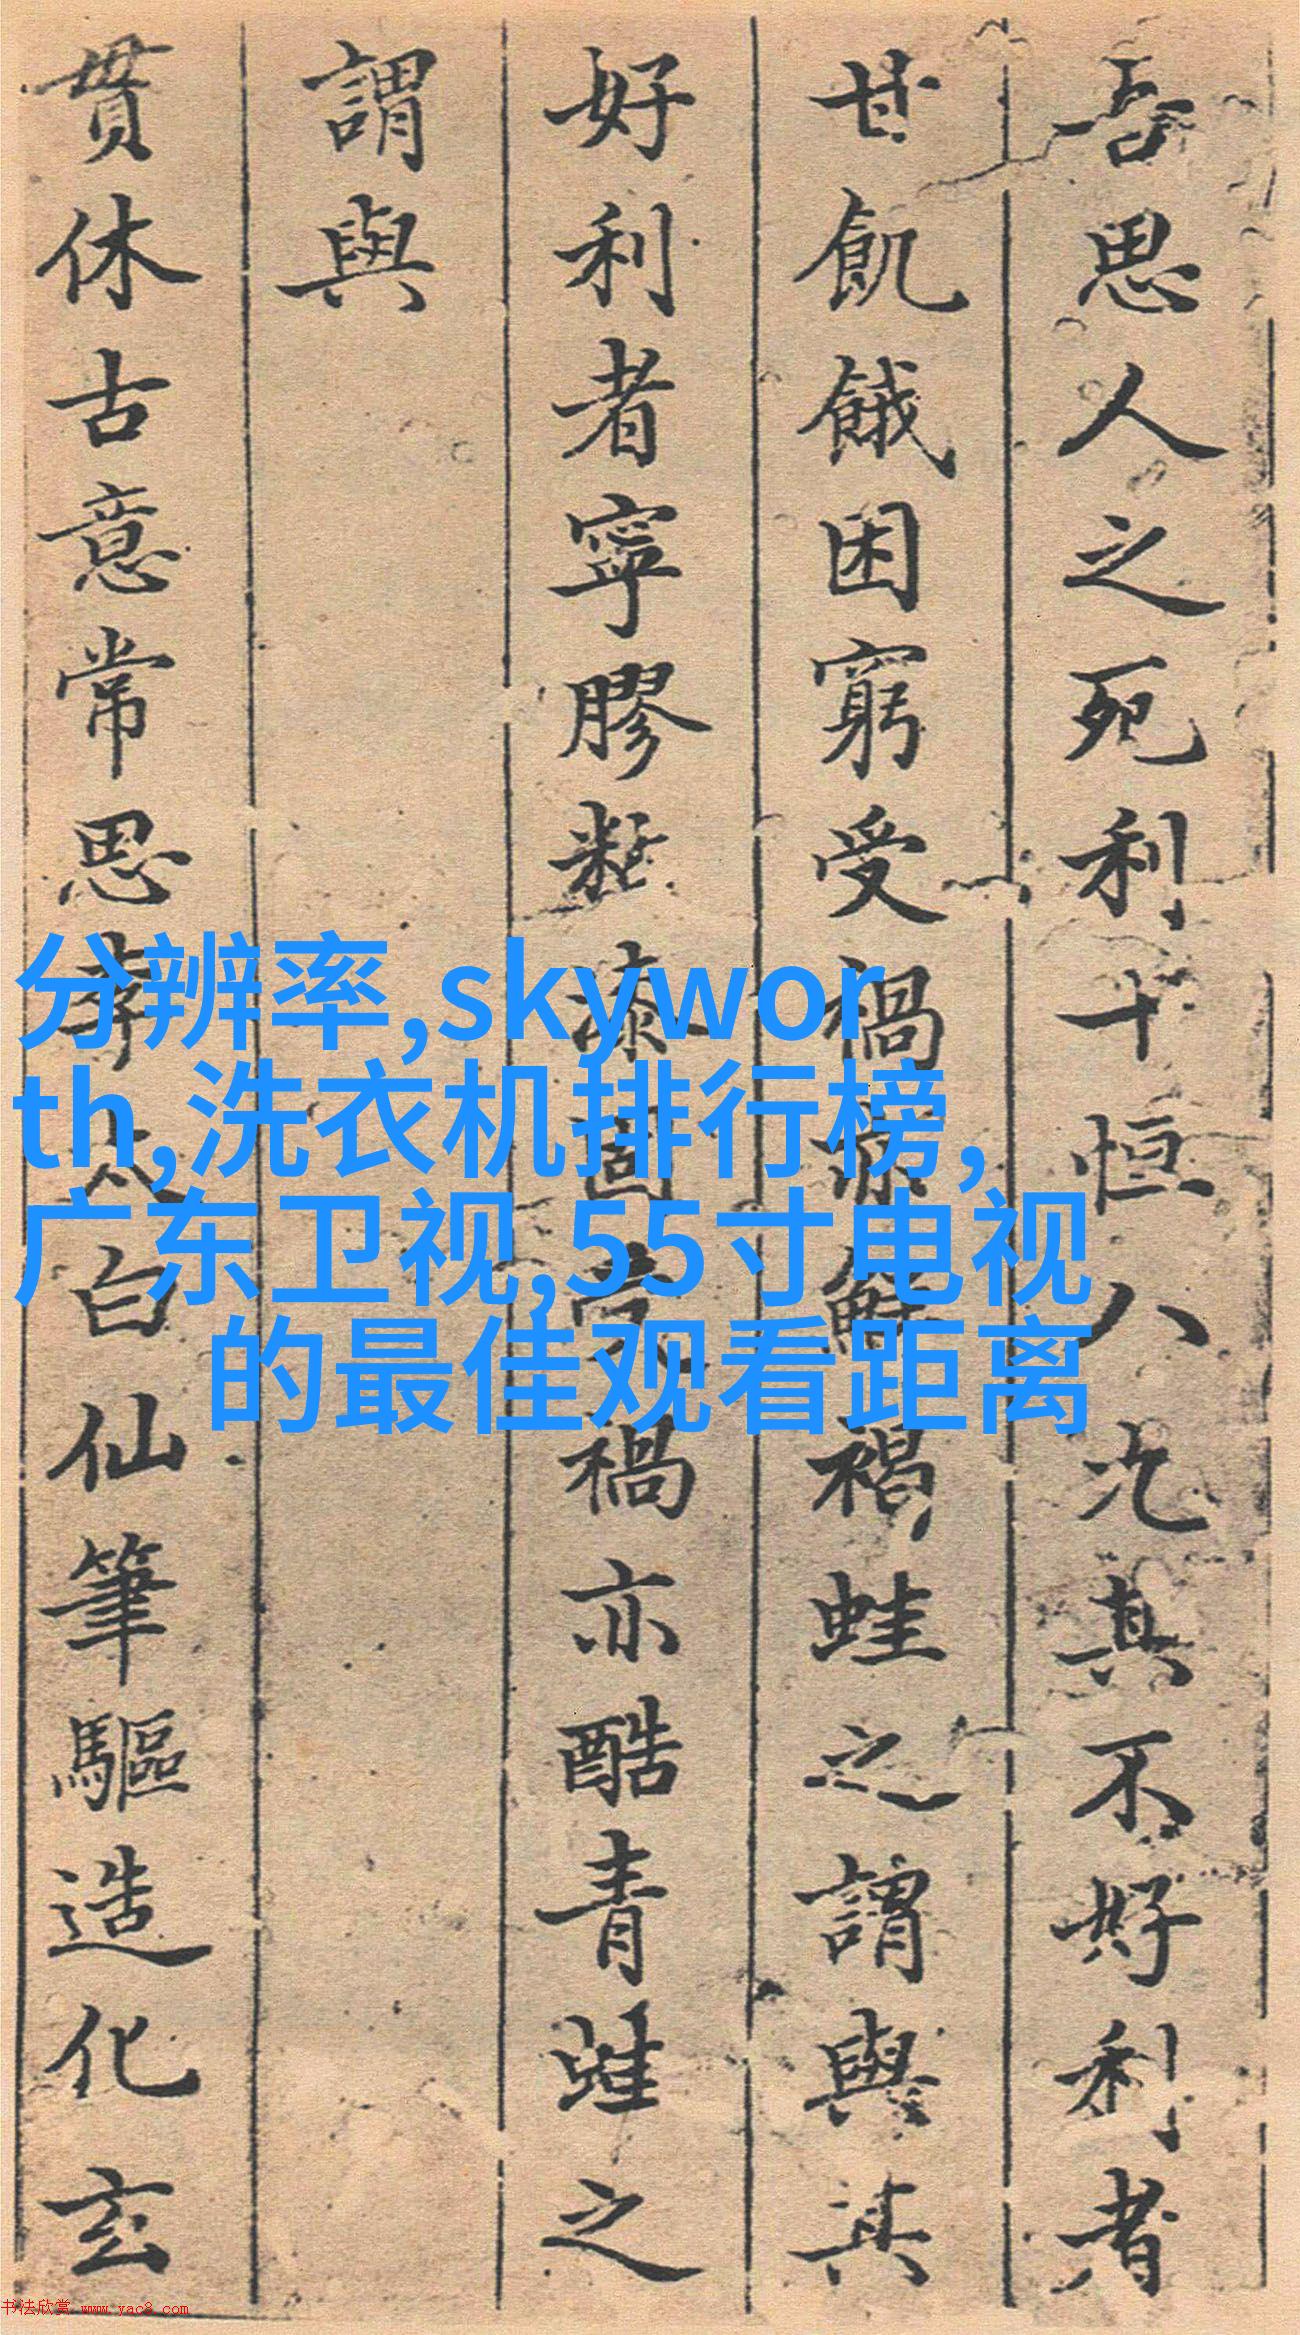 吾思人之死利十恒八九其不好利者
甘飢餓困窮受禍褐蛙之謂與其
好利者寧膠黏漆固禍亦酷青蛙之
謂與
貫休古意常思李太白仙筆驅造化玄
分辨率,skywor
th,洗衣机排行榜,
广东卫视,55寸电视
的最佳观看距离
书法欣赏 www.yac8.com